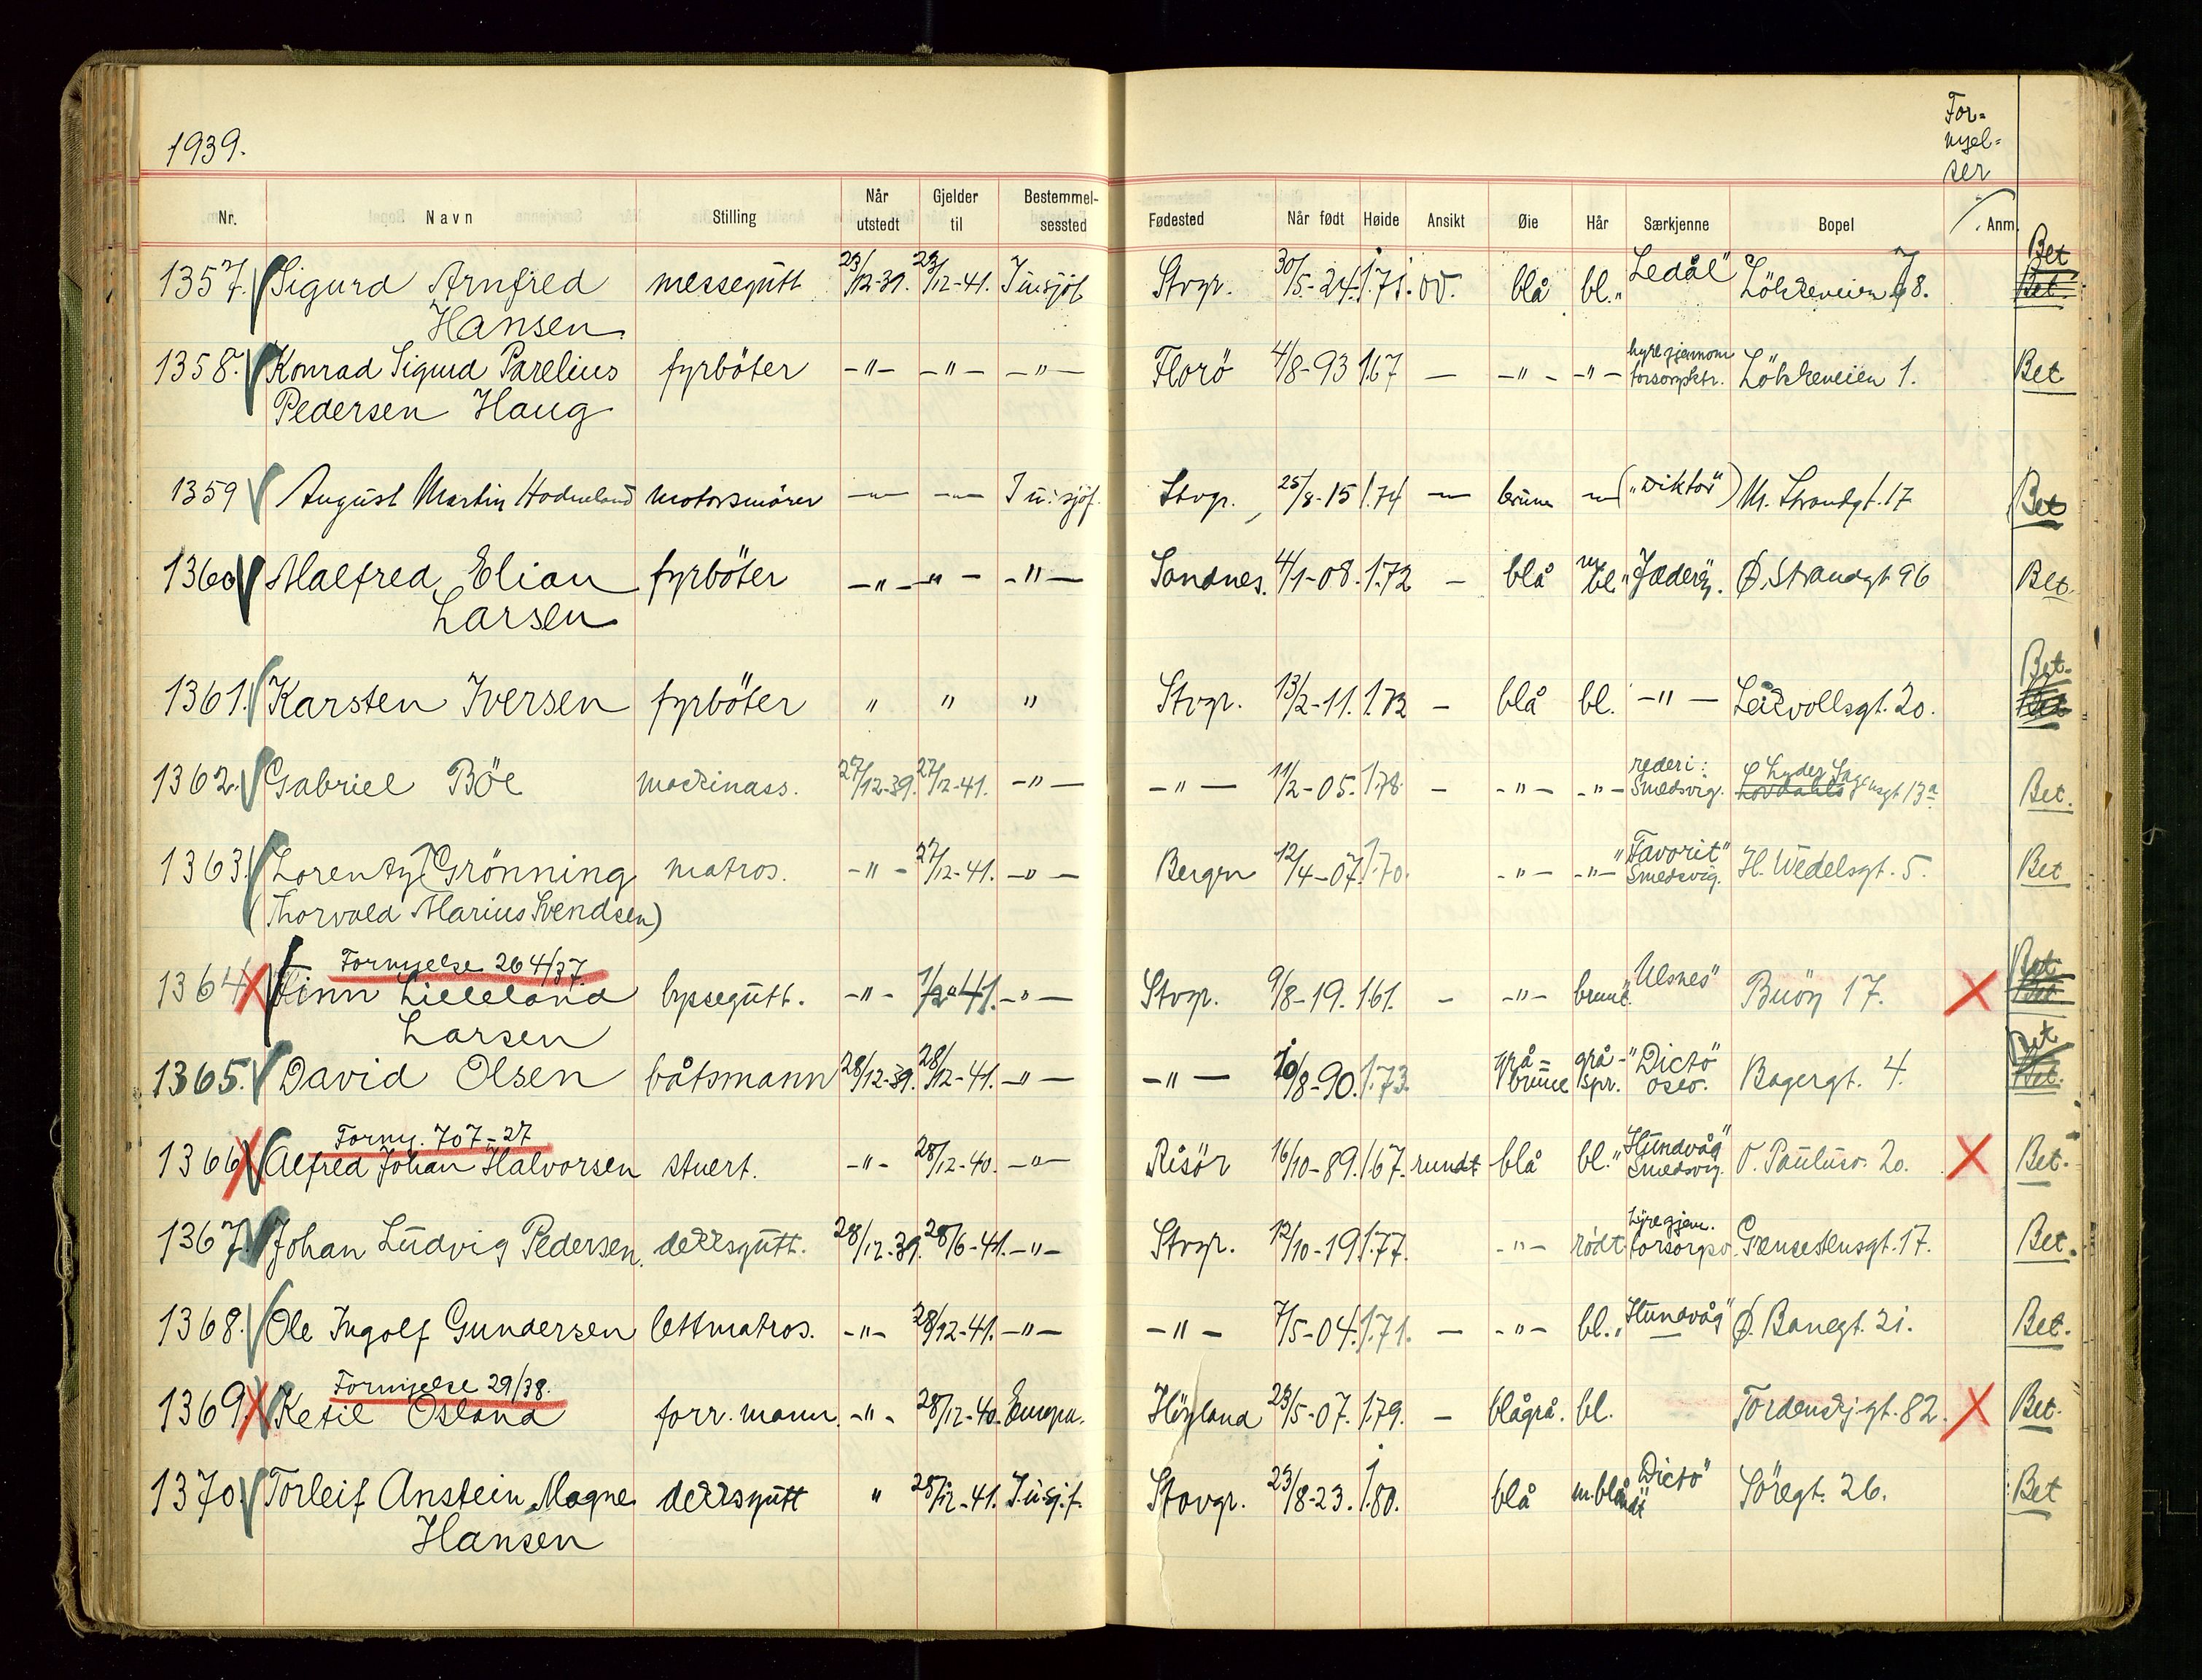 1939.
For-
nyel-
ser
Nr. Navn Stilling Når utstedt Gjelder til Bestemmel-sessted Fødested Når født Høide Ansikt Øie Hår Særkjenne Bopel Anm.
1357. Sigurd Arnfred messegutt 23/12-39. 23/12-41. Stvgr. 30/5-24. 1.71. ov. blå bl. "Ledål" Lökkeveien 78. Bet
Hansen
1358. Konrad Sigurd Parelius fyrböter -"- -"- -"- Florö 4/8-93 1.67 - -"- -"- hyre gjennom Lökkeveien 1. Bet
Pedersen Haug
1359 August Martin Hodneland motorsmörer -"- -"- Stvgr. 25/8-15 1.74 - brune -"- ("Diktö") N. Strandgt. 17 Bet
1360 Alalfred Elian fyrböter -"- -"- -"- Sandnes. 4/1-08. 1.72 - blå bl. "Jæderö". Ø. Strandgt 96 Bet.
Larsen
1361. Karsten Iversen fyrböter " " " Stvgr. 13/2-11. 1.72 - blå bl. -"- Leikvollsgt. 20. Bet.
1362. Gabriel Böe maskinass. 27/12-39. 27/12-41. -"- -"- 11/2-05. 1.78. - -"- -"- rederi: Smedsvig. Lyder Sagensgt 13a Bet.
1363. Lorentz Grönning matros. -"- 27/12-41. -"- Bergen 12/4-07. 1.70. -"- -"- "Favorit" Smedsvig. H. Wedelsgt. 5. Bet
(Thorvald Marius Svendsen)
Fornyelse 264/37.
1364 Finn Lilleland byssegutt. -"- -"- Stvgr. 9/8-19. 1.61. - -"- brunt. "Ulsnes" Buöy 17. Bet
Larsen
1365. David Olsen båtsmann 28/12-39. 28/12-41. -"- -"- 10/8-90. 1.73. grå-brune grå-spr. "Dictö" Oslo. Bagergt. 4. Bet
Forny. 707-27
1366 Alfred Johan Halvorsen stuert. -"- 28/12-40. -"- Risör 16/10-89. 1.67. rundt blå bl. "Hundvåg" Smedsvig. 20. Bet.
1367. Johan Ludvig Pedersen. dekksgutt. 28/12-39. 28/6-41. -"- Stvgr. 12/10-19 1.77. -"- rødt Grensestensgt. 17. Bet.
1368. Ole Ingolf Gundersen lettmatros. -"- 28/12-41. -"- -"- 7/5-04. 1.71. - -"- bl. "Hundvåg" Ø. Banegt. 21. Bet.
Fornyelse 29/38.
1369. Ketil Osland forr. mann. -"- 28/12-40. Europa. Höyland 23/5-07. 1.79. - blågrå. bl. Tordenskj.gt. 82. Bet.
1370. Torleif Anstein Magne dekksgutt " 28/12-41. Stavgr. 23/8-23. 1.80. blå "Dictö" Söregt. 26. Bet
Hansen